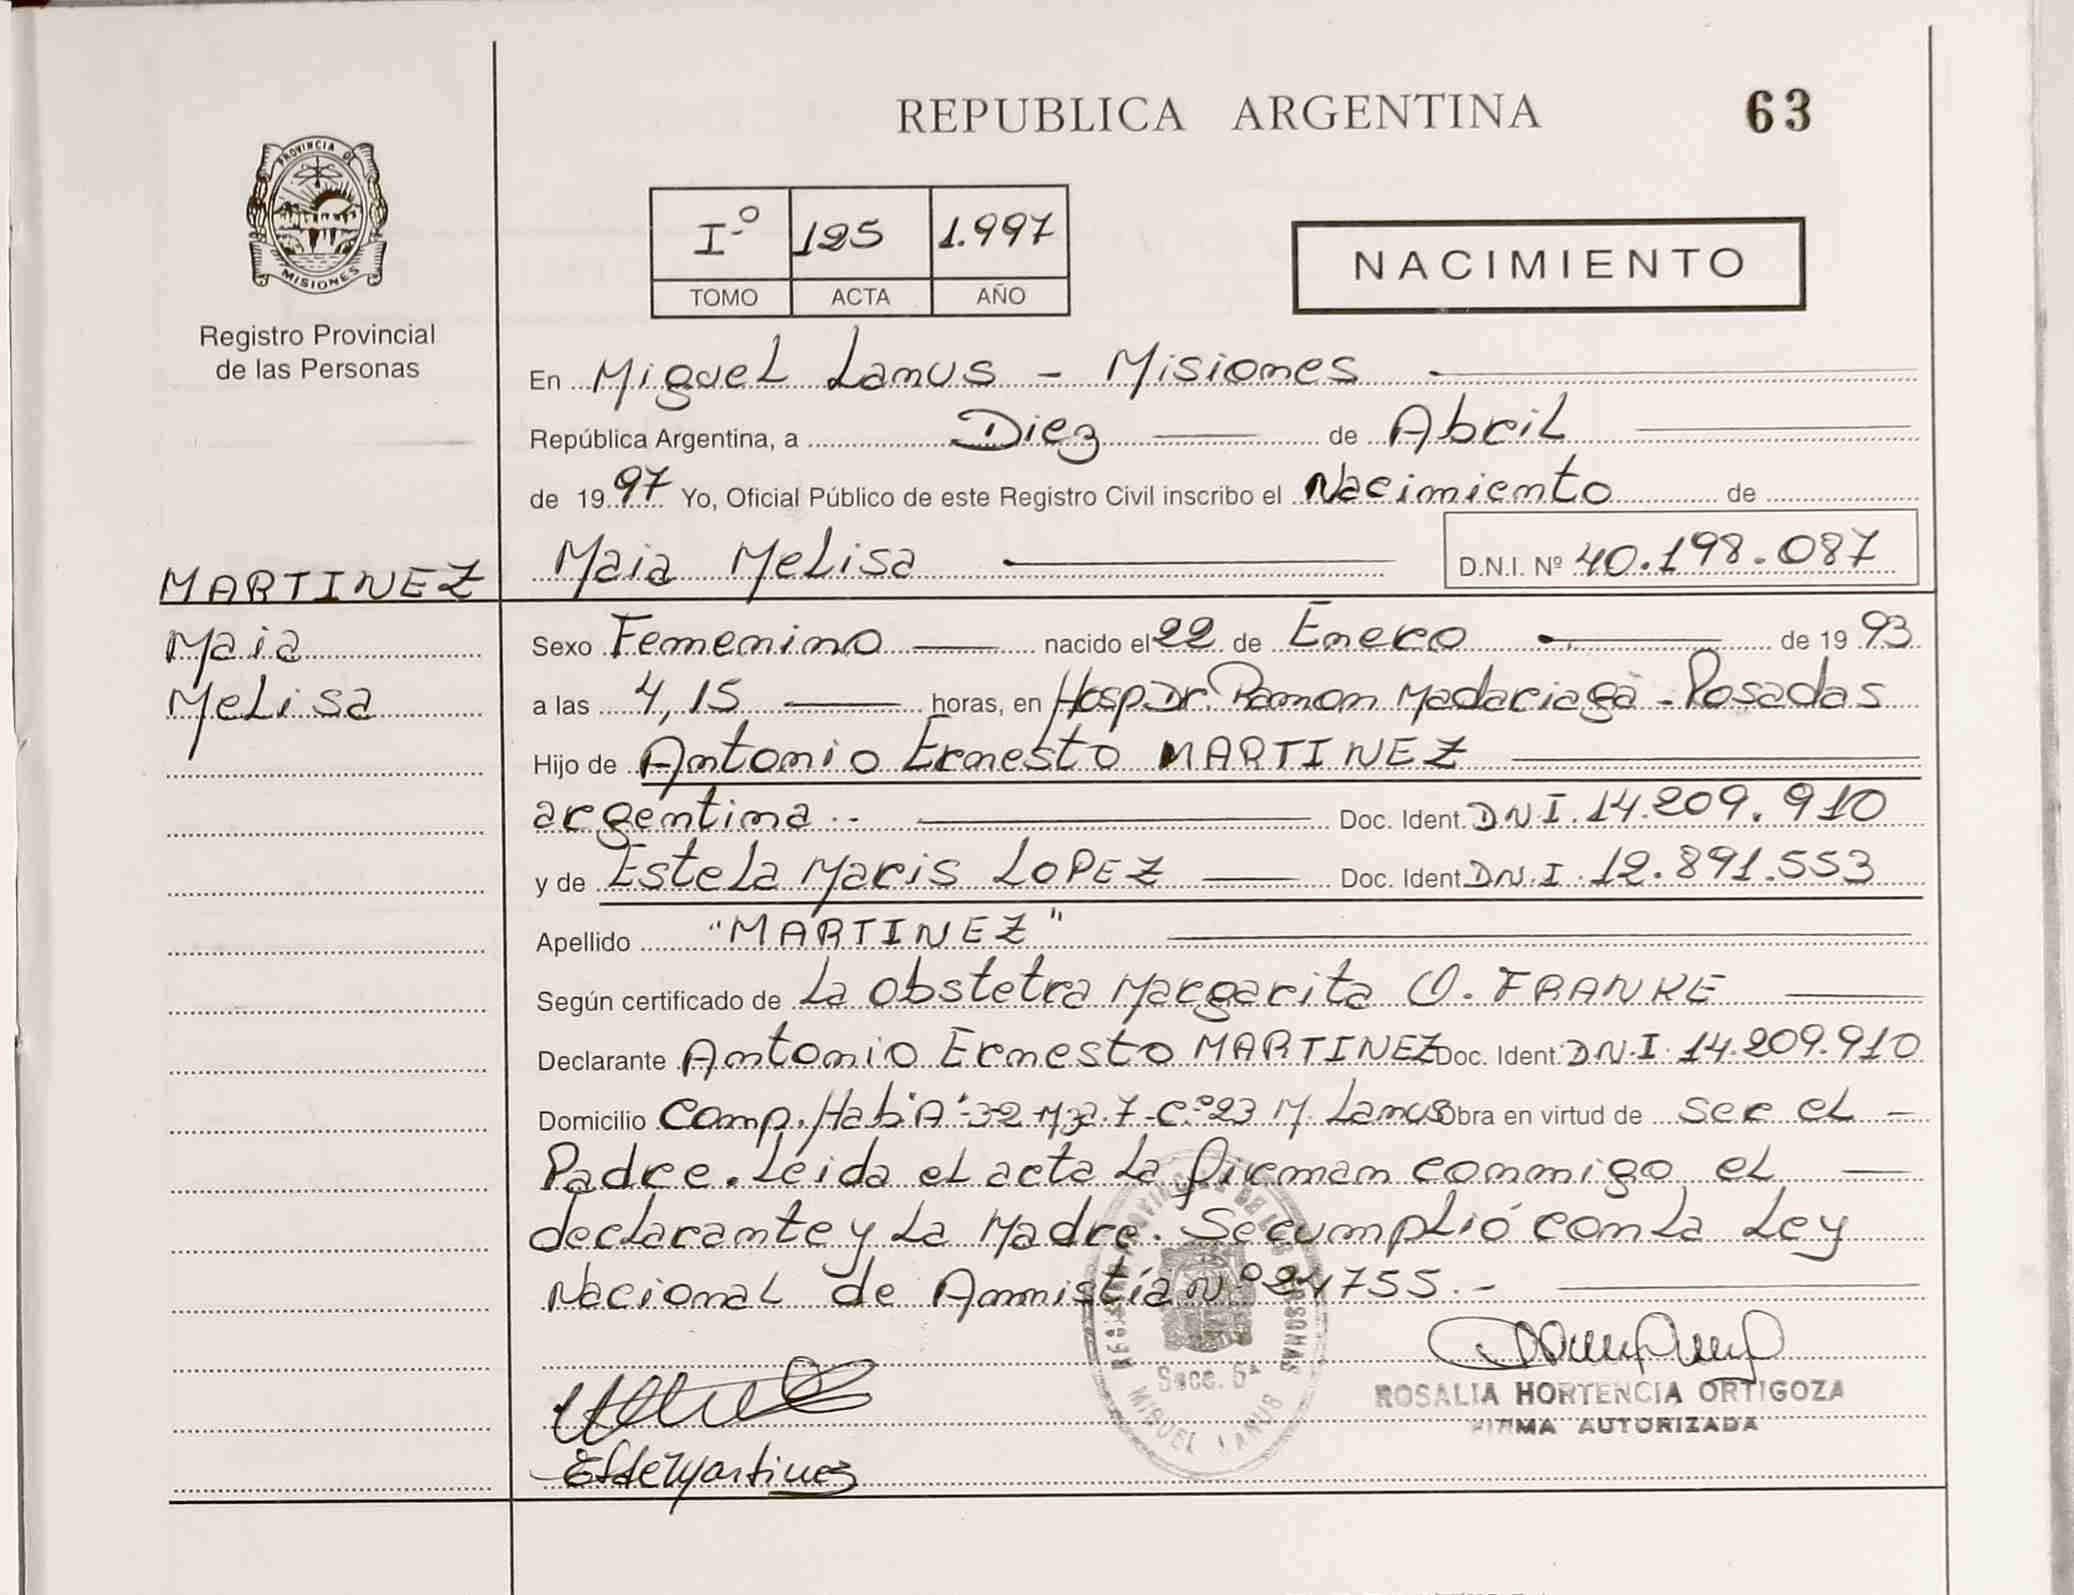 REPUBLICA ARGENTINA
63
PROVINCIA DE
MISIONES
Registro Provincial
de las Personas
I-º 125 1.997
TOMO ACTA AÑO
NACIMIENTO
En Miguel Lanus - Misiones
República Argentina, a Diez de Abril
de 1997 Yo, Oficial Público de este Registro Civil inscribo el Nacimiento de
Maia Melisa D.N.I. Nº 40.198.087
MARTINEZ
Maia
Melisa
Sexo Femenino nacido el 22 de Enero de 1993
a las 4,15 horas, en Hosp. Dr. Ramon Madariaga - Posadas
Hijo de Antonio Ernesto MARTINEZ
argentina.- Doc. Ident. D.N.I. 14.209.910
y de Estela Maris LOPEZ Doc. Ident D.N.I. 12.891.553
Apellido "MARTINEZ"
Según certificado de La obstetra Margarita O. FRANKE
Declarante Antonio Ernesto MARTINEZ Doc. Ident. D.N.I. 14.209.910
Domicilio Comp. Hab "A"-32 Mza. 7-C.º23 M. Lanus Obra en virtud de ser el -
Padre. Leida el acta La firman conmigo el
declarante y La Madre. Se cumplió con La Ley
Nacional de Amnistía Nº 24755.-
Secc. 5ª
MIGUEL LANUS
ROSALIA HORTENCIA ORTIGOZA
FIRMA AUTORIZADA